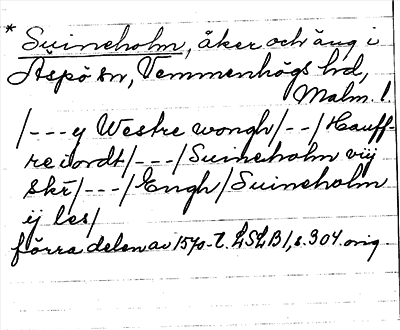 * Suineholm, åker och äng i
Äspö sn, Vemmenhögs hd,
Malm. l.
/---y Westre wongh/--/Hauff-
re iordt/---/Suineholm viij
skr̄/---/Engh/Suineholm
ij les/
förra delen av 1570-t. LSLB1, s. 304. orig.